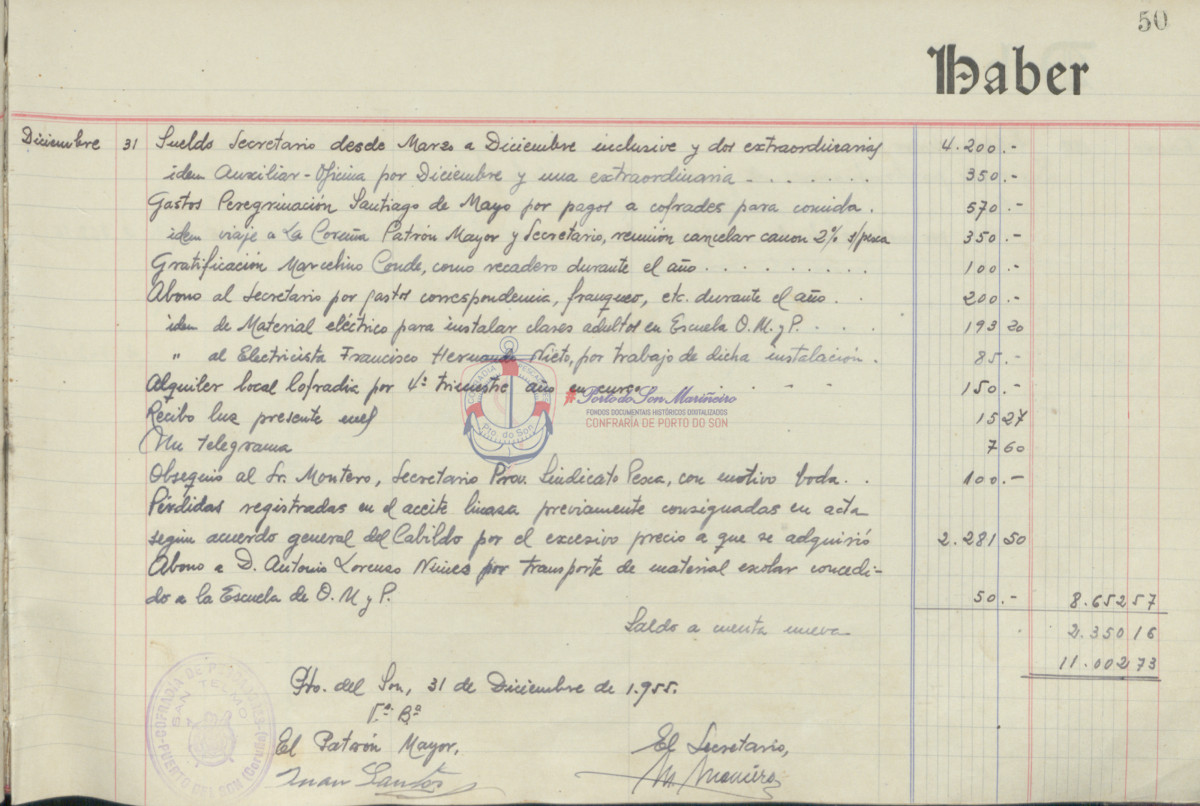 50
Haber
Diciembre 31 Sueldo Secretario desde Marzo a Diciembre inclusive y dos extraordinarias 4.200.-
idem Auxiliar-Oficina por Diciembre y una extraordinaria . . . . . . . 350.-
Gastos Peregrinación Santiago de Mayo por pagos a cofrades para comida . 570.-
idem viaje a La Coruña Patrón Mayor y Secretario, reunión cancelar canon 2% s/pesca 350.-
Gratificación Marcelino Conde, como recadero durante el año . . . . . . . . . 100.-
Abono al Secretario por gastos correspondencia, franqueo, etc. durante el año . . 200.-
idem de Material eléctrico para instalar clases adultos en Escuela O. M. y P. . . . 193 20
" al Electricista Francisco Nieto, por trabajo de dicha instalación . 85.-
Alquiler local Cofradía por 4º trimestre año en curso . . . . 150.-
Recibo luz presente mes 15 27
Un telegrama 7 60
Obsequio al Sr. Montero, Secretario Prov. Sindicato Pesca, con motivo boda . . 100.-
Pérdidas registradas en el aceite linaza previamente consignadas en acta
según acuerdo general del Cabildo por el excesivo precio a que se adquirió 2.281 50
Abono a D. Antonio Lorenzo Nunes por transporte de material escolar concedi-
do a la Escuela de O. M. y P. 50.- 8.652 57
Saldo a cuenta nueva 2.350 16
11.002 73
Pto. del Son, 31 de Diciembre de 1.955.
Vº Bº
El Patrón Mayor, El Secretario,
Juan Santos
COFRADIA DE PESCADORES
SAN TELMO
PUERTO DEL SON (Coruña)
Pto. do Son
#PortodoSonMariñeiro
FONDOS DOCUMENTAIS HISTÓRICOS DIXITALIZADOS
CONFRARÍA DE PORTO DO SON